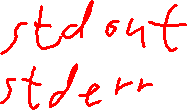 stdout
stderr